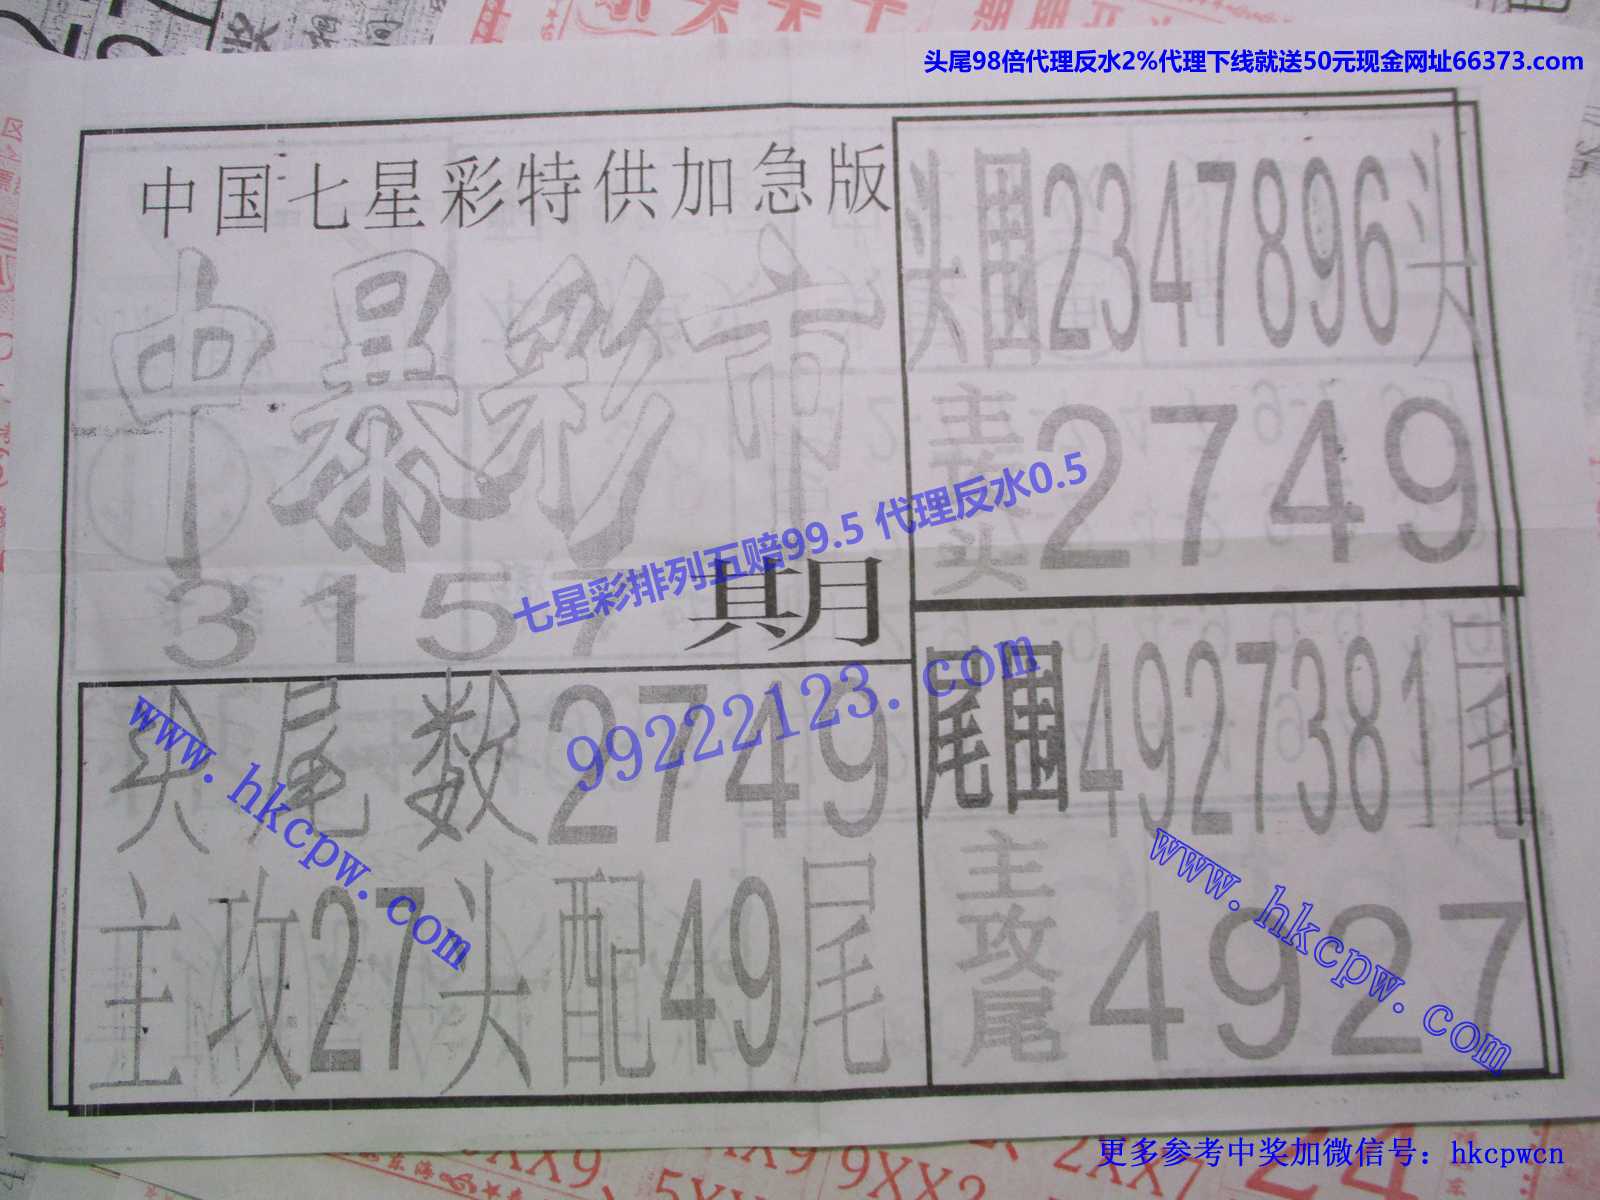 头尾98倍代理反水2%代理下线就送50元现金网址66373.com
中国七星彩特供加急版
中暴彩市
3157期
头围2347896头
主攻头2749
七星彩排列五赔99.5 代理反水0.5
99222123.com
头尾数2749
主攻27头配49尾
尾围4927381尾
主攻尾4927
www.hkcpw.com
www.hkcpw.com
更多参考中奖加微信号：hkcpwcn